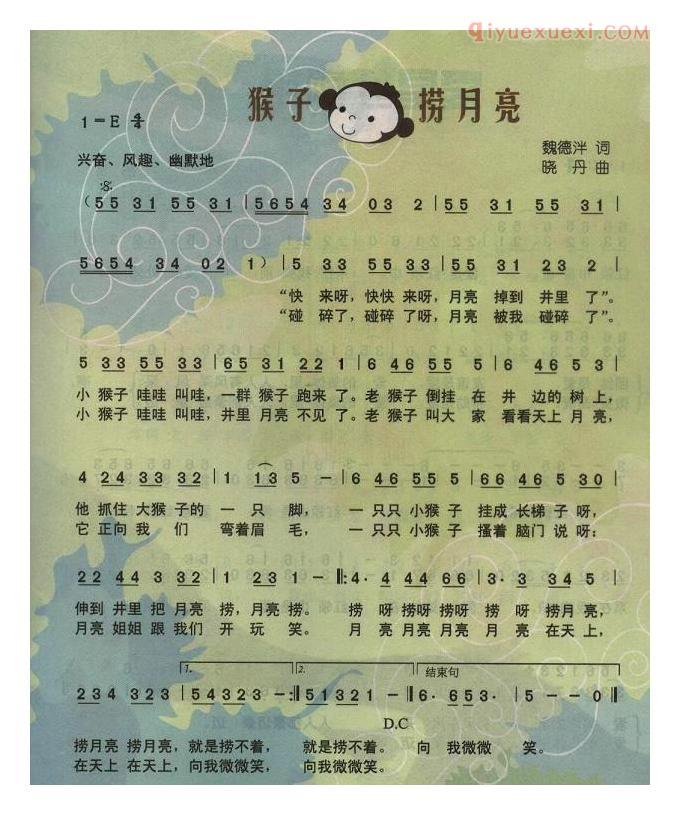 qiyuexuexi.COM
猴子捞月亮
1=E 4/4
魏德泮 词
兴奋、风趣、幽默地
晓 丹 曲
(55 31 55 31 | 5654 34 03 2 | 55 31 55 31 |
5654 34 02 1) | 5 33 55 33 | 55 31 23 2 |
“快 来呀，快快 来呀，月亮 掉到 井里 了”。
“碰 碎了，碰碎 了呀，月亮 被我 碰碎 了”。
5 33 55 33 | 65 31 22 1 | 6 46 55 5 | 6 46 5 3 |
小 猴子 哇哇 叫哇，一群 猴子 跑来 了。老 猴子 倒挂 在 井 边的 树 上，
小 猴子 哇哇 叫哇，井里 月亮 不见 了。老 猴子 叫大 家 看看天上 月 亮，
4 24 33 32 | 1 13 5 - | 6 46 55 5 | 6 46 5 30 |
他 抓住 大猴 子的 一 只 脚， 一 只只 小猴 子 挂成 长梯 子 呀，
它 正向 我 们 弯着 眉 毛， 一 只只 小猴 子 搔着 脑门 说 呀：
22 44 3 32 | 1 23 1 - ‖: 4· 4 44 66 | 3· 3 34 5 |
伸到 井里 把 月亮 捞，月亮 捞。 捞 呀 捞呀 捞呀 捞 呀 捞月 亮，
月亮 姐姐 跟 我们 开 玩 笑。 月 亮 月亮 月亮 月 亮 在天 上，
1. 2. 结束句
234 323 | 54323 - :‖ 51321 - ‖ 6· 653· | 5 - - 0 ‖
D.C
捞月亮 捞月亮，就是捞不着， 就是捞不着。 向 我微微 笑。
在天上 在天上，向我微微笑， 向我微微笑。